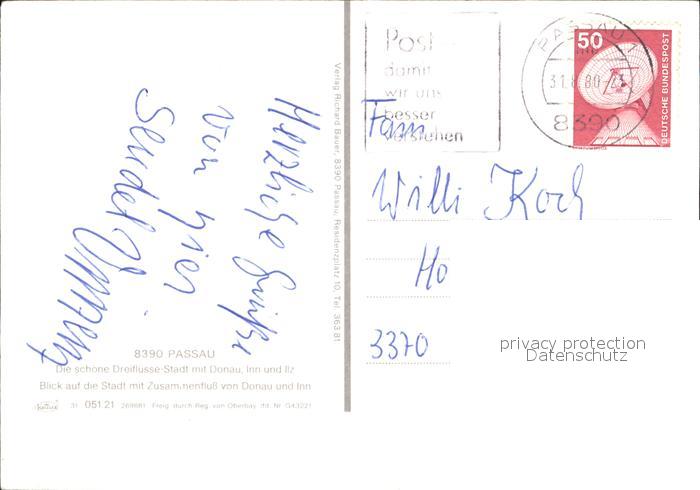 Herzliche Grüße
von hier
sendet
8390 PASSAU
Die schöne Dreiflüsse-Stadt mit Donau, Inn und Ilz
Blick auf die Stadt mit Zusammenfluß von Donau und Inn
31 051 21 269881 Freig. durch Reg. von Oberbay. lfd. Nr. G43221
Verlag Richard Bauer, 8390 Passau, Residenzplatz 10, Tel. 36381
Post -
damit
wir uns
besser
verstehen
PASSAU 1
31.8.80-23
8390
50
DEUTSCHE BUNDESPOST
Fam
Willi Koch
Ho
3370
privacy protection
Datenschutz